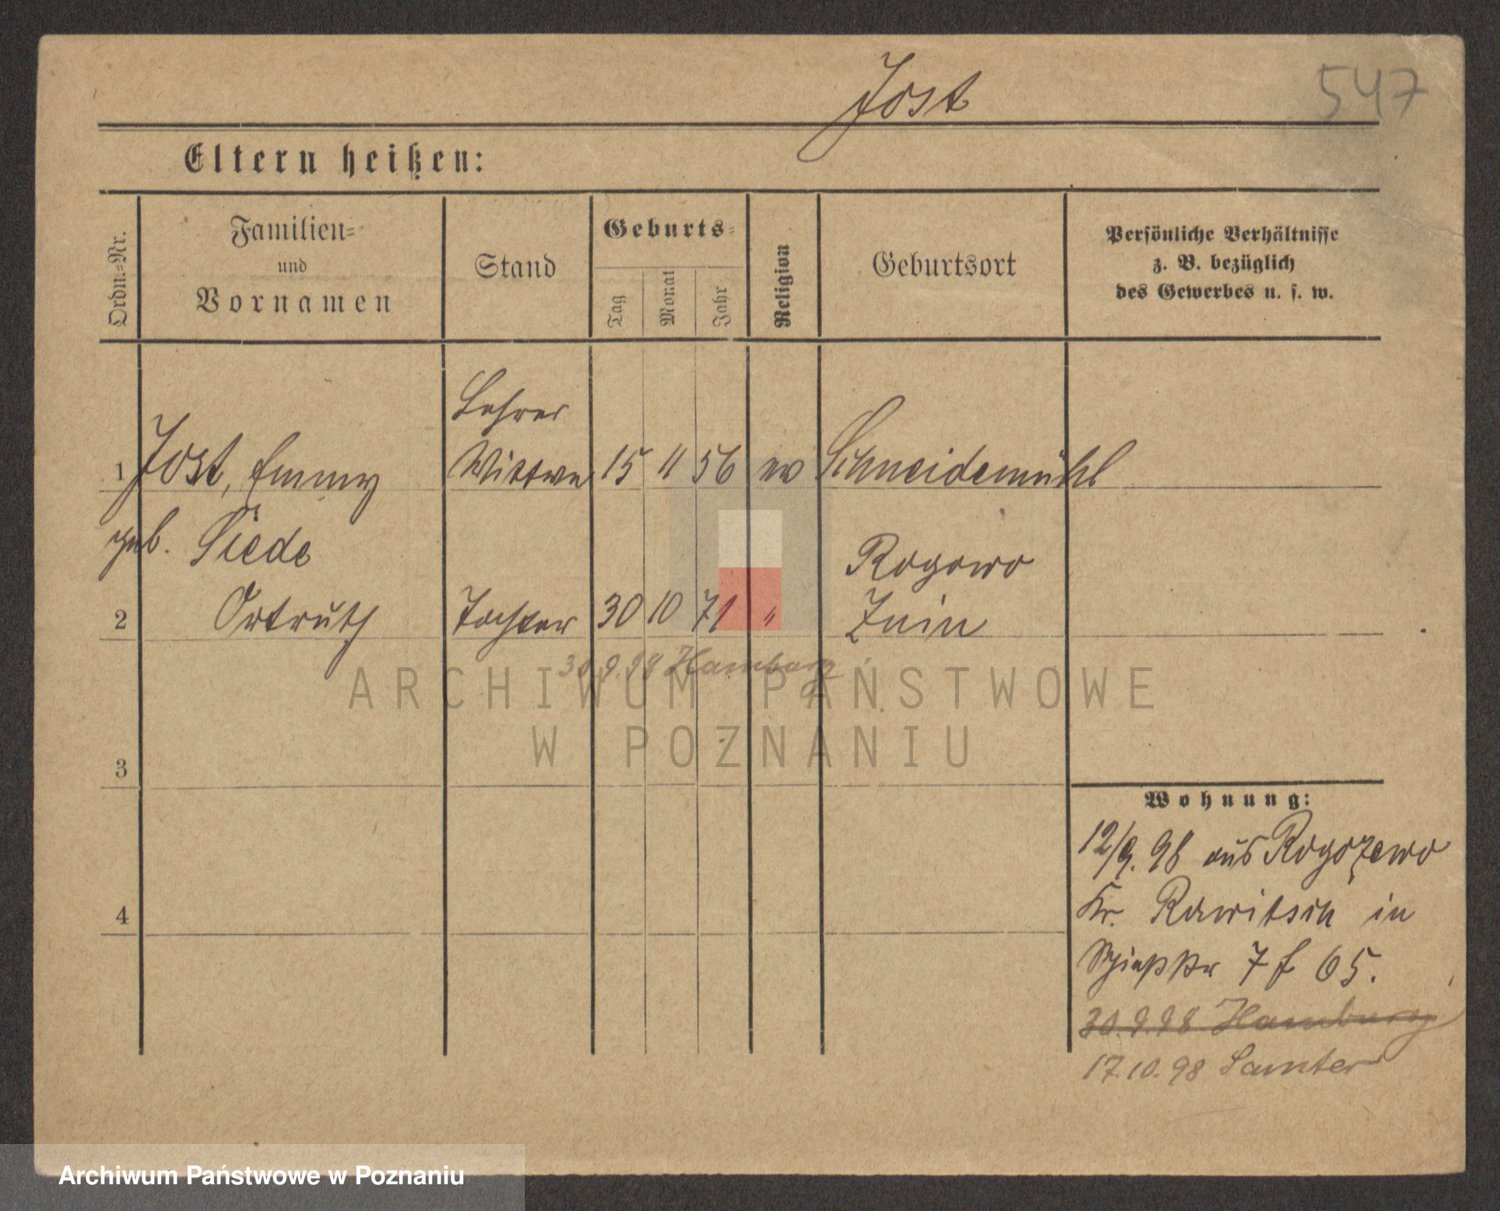 Jost
547
Eltern heißen:
Ordn.-Nr.
Familien-
und
Vornamen
Stand
Geburts-
Tag
Monat
Jahr
Religion
Geburtsort
Persönliche Verhältnisse
z. B. bezüglich
des Gewerbes u. s. w.
Lehrer
1 Jost, Emmy Wittwe 15 11 56 ev Schneidemühl
geb. Siede
Rogowo
2 Ortruth Tochter 30 10 71 " Znin
30.9.98 Hamburg
3
4
Wohnung:
12/9. 98 aus Rogozewo
Kr. Rawitsch in
7 f 65.
30.9.98 Hamburg
17.10.98 Samter
ARCHIWUM PAŃSTWOWE
W POZNANIU
Archiwum Państwowe w Poznaniu